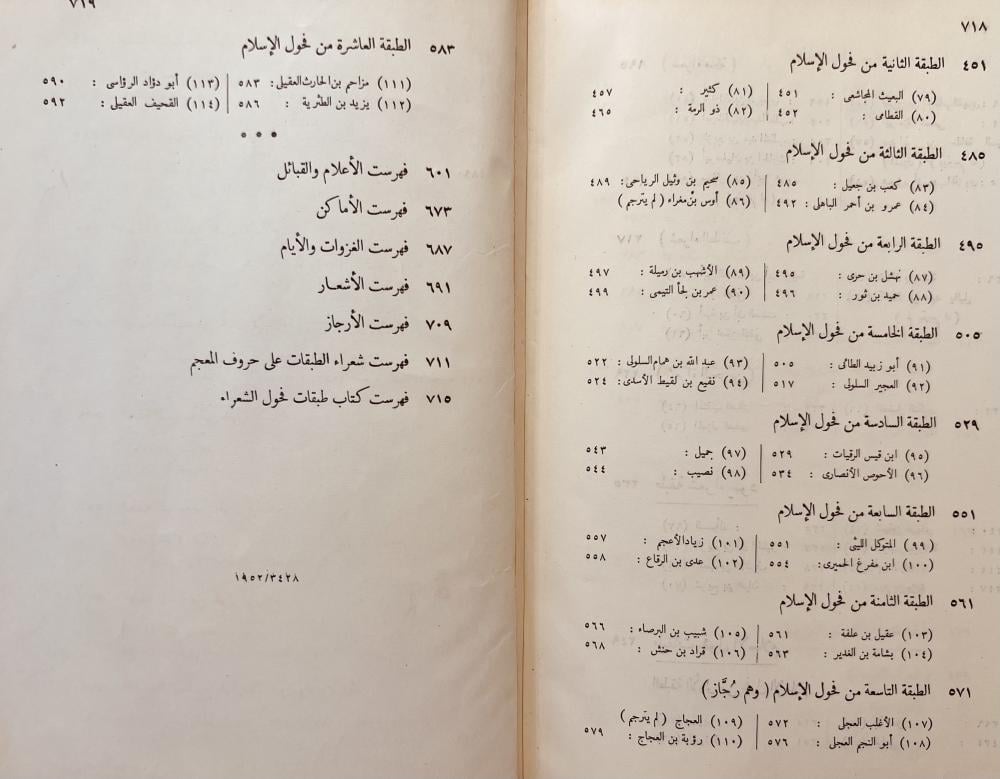 ٧١٨
٤٥١ الطبقة الثانية من فحول الإسلام
(٧٩) البعيث المجاشعى : ٤٥١ (٨١) كثير : ٤٥٧
(٨٠) القطامى : ٤٥٢ (٨٢) ذو الرمة : ٤٦٥
٤٨٥ الطبقة الثالثة من فحول الإسلام
(٨٣) كعب بن جعيل : ٤٨٥ (٨٥) سحيم بن وثيل الرياحى : ٤٨٩
(٨٤) عمرو بن أحمر الباهلى : ٤٩٢ (٨٦) أوس بن مغراء ( لم يترجم )
٤٩٥ الطبقة الرابعة من فحول الإسلام
(٨٧) نهشل بن حرى : ٤٩٥ (٨٩) الأشهب بن رميلة : ٤٩٧
(٨٨) حميد بن ثور : ٤٩٦ (٩٠) عمر بن لجأ التيمى : ٤٩٩
٥٠٥ الطبقة الخامسة من فحول الإسلام
(٩١) أبو زبيد الطائى : ٥٠٥ (٩٣) عبد الله بن همام السلولى : ٥٢٢
(٩٢) العجير السلولى : ٥١٧ (٩٤) نفيع بن لقيط الأسدى : ٥٢٤
٥٢٩ الطبقة السادسة من فحول الإسلام
(٩٥) ابن قيس الرقيات : ٥٢٩ (٩٧) جميل : ٥٤٣
(٩٦) الأحوص الأنصارى : ٥٣٤ (٩٨) نصيب : ٥٤٤
٥٥١ الطبقة السابعة من فحول الإسلام
(٩٩) المتوكل الليثى : ٥٥١ (١٠١) زياد الأعجم : ٥٥٧
(١٠٠) ابن مفرغ الحميرى : ٥٥٤ (١٠٢) عدى بن الرقاع : ٥٥٨
٥٦١ الطبقة الثامنة من فحول الإسلام
(١٠٣) عقيل بن علفة : ٥٦١ (١٠٥) شبيب بن البرصاء : ٥٦٦
(١٠٤) بشامة بن الغدير : ٥٦٣ (١٠٦) قراد بن حنش : ٥٦٨
٥٧١ الطبقة التاسعة من فحول الإسلام ( وهم رُجَّاز )
(١٠٧) الأغلب العجلى : ٥٧٢ (١٠٩) العجاج ( لم يترجم )
(١٠٨) أبو النجم العجلى : ٥٧٦ (١١٠) رؤبة بن العجاج : ٥٧٩
٧١٩
٥٨٣ الطبقة العاشرة من فحول الإسلام
(١١١) مزاحم بن الحارث العقيلى : ٥٨٣ (١١٣) أبو دؤاد الرؤاسى : ٥٩٠
(١١٢) يزيد بن الطثرية : ٥٨٦ (١١٤) القحيف العقيلى : ٥٩٢
٦٠١ فهرست الأعلام والقبائل
٦٧٣ فهرست الأماكن
٦٨٧ فهرست الغزوات والأيام
٦٩١ فهرست الأشعـار
٧٠٩ فهرست الأرجاز
٧١١ فهرست شعراء الطبقات على حروف المعجم
٧١٥ فهرست كتاب طبقات فحول الشعراء
١٩٥٢/٣٤٢٨